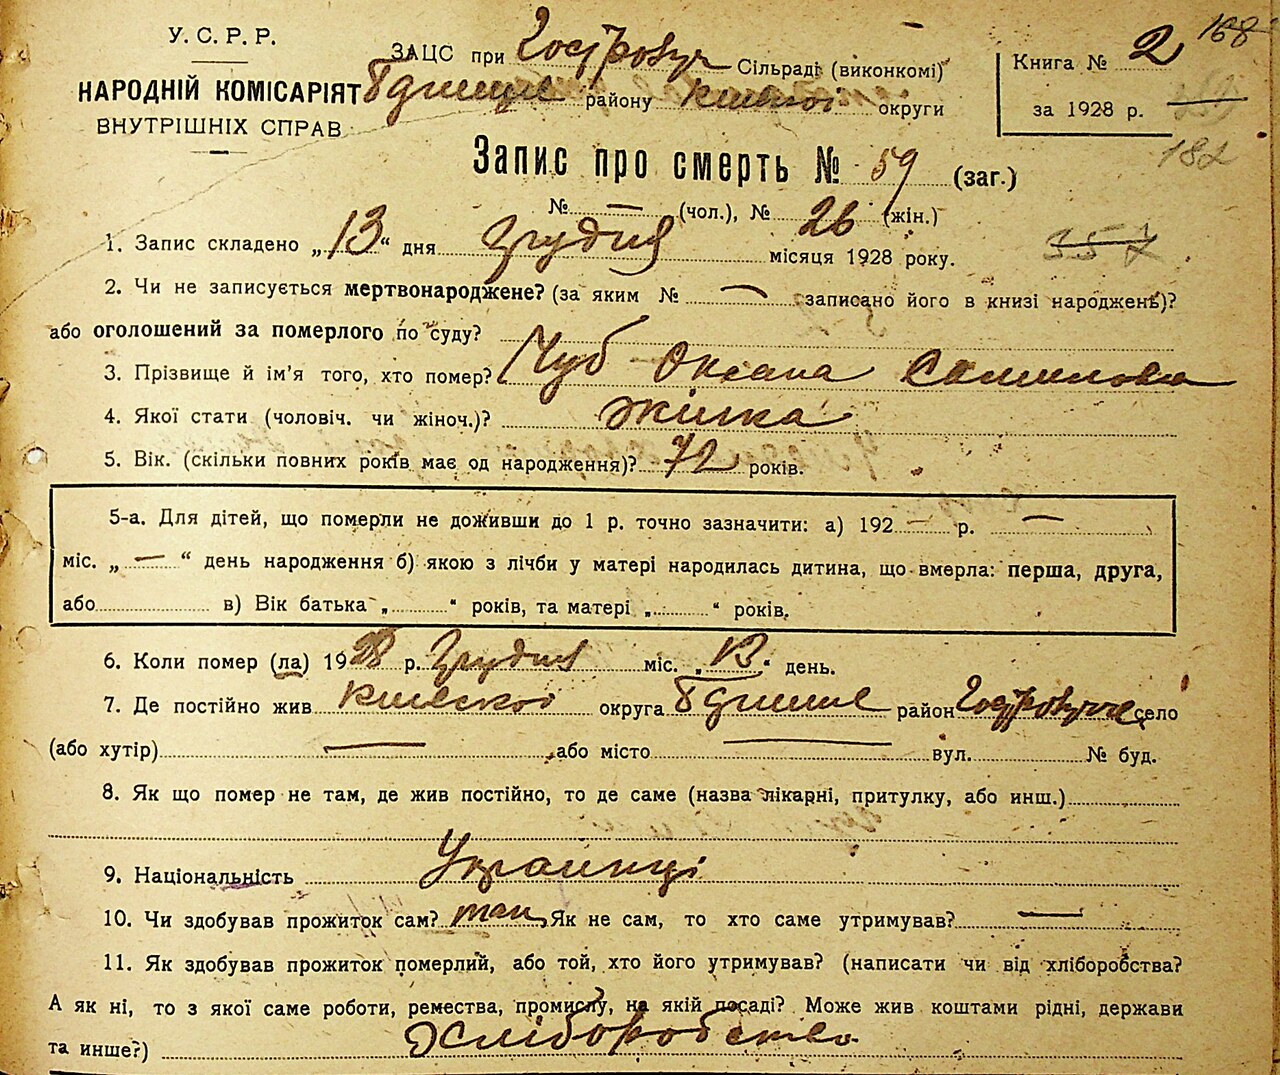 У. С. Р. Р.
НАРОДНІЙ КОМІСАРІЯТ
ВНУТРІШНІХ СПРАВ
ЗАЦС при Сільраді (виконкомі)
району округи
Книга № 2
за 1928 р.
168
182
357
Запис про смерть № 59 (заг.)
№ — (чол.), № 26 (жін.)
1. Запис складено „13“ дня грудня місяця 1928 року.
2. Чи не записується мертвонароджене? (за яким № — записано його в книзі народжень)?
або оголошений за померлого по суду?
3. Прізвище й ім'я того, хто помер? Чуб Оксана
4. Якої стати (чоловіч. чи жіноч.)? жінка
5. Вік. (скільки повних років має од народження)? 72 років.
5-а. Для дітей, що померли не доживши до 1 р. точно зазначити: а) 192 — р. —
міс. „ — “ день народження б) якою з лічби у матері народилась дитина, що вмерла: перша, друга,
або в) Вік батька „ “ років, та матері „ “ років.
6. Коли помер (ла) 1928 р. грудня міс. „13“ день.
7. Де постійно жив округа район село
(або хутір) — або місто — вул. № буд.
8. Як що помер не там, де жив постійно, то де саме (назва лікарні, притулку, або инш.)
9. Національність Українці
10. Чи здобував прожиток сам? так Як не сам, то хто саме утримував? —
11. Як здобував прожиток померлий, або той, хто його утримував? (написати чи від хліборобства?
А як ні, то з якої саме роботи, ремества, промислу, на якій посаді? Може жив коштами рідні, держави
та инше?) Хліборобство